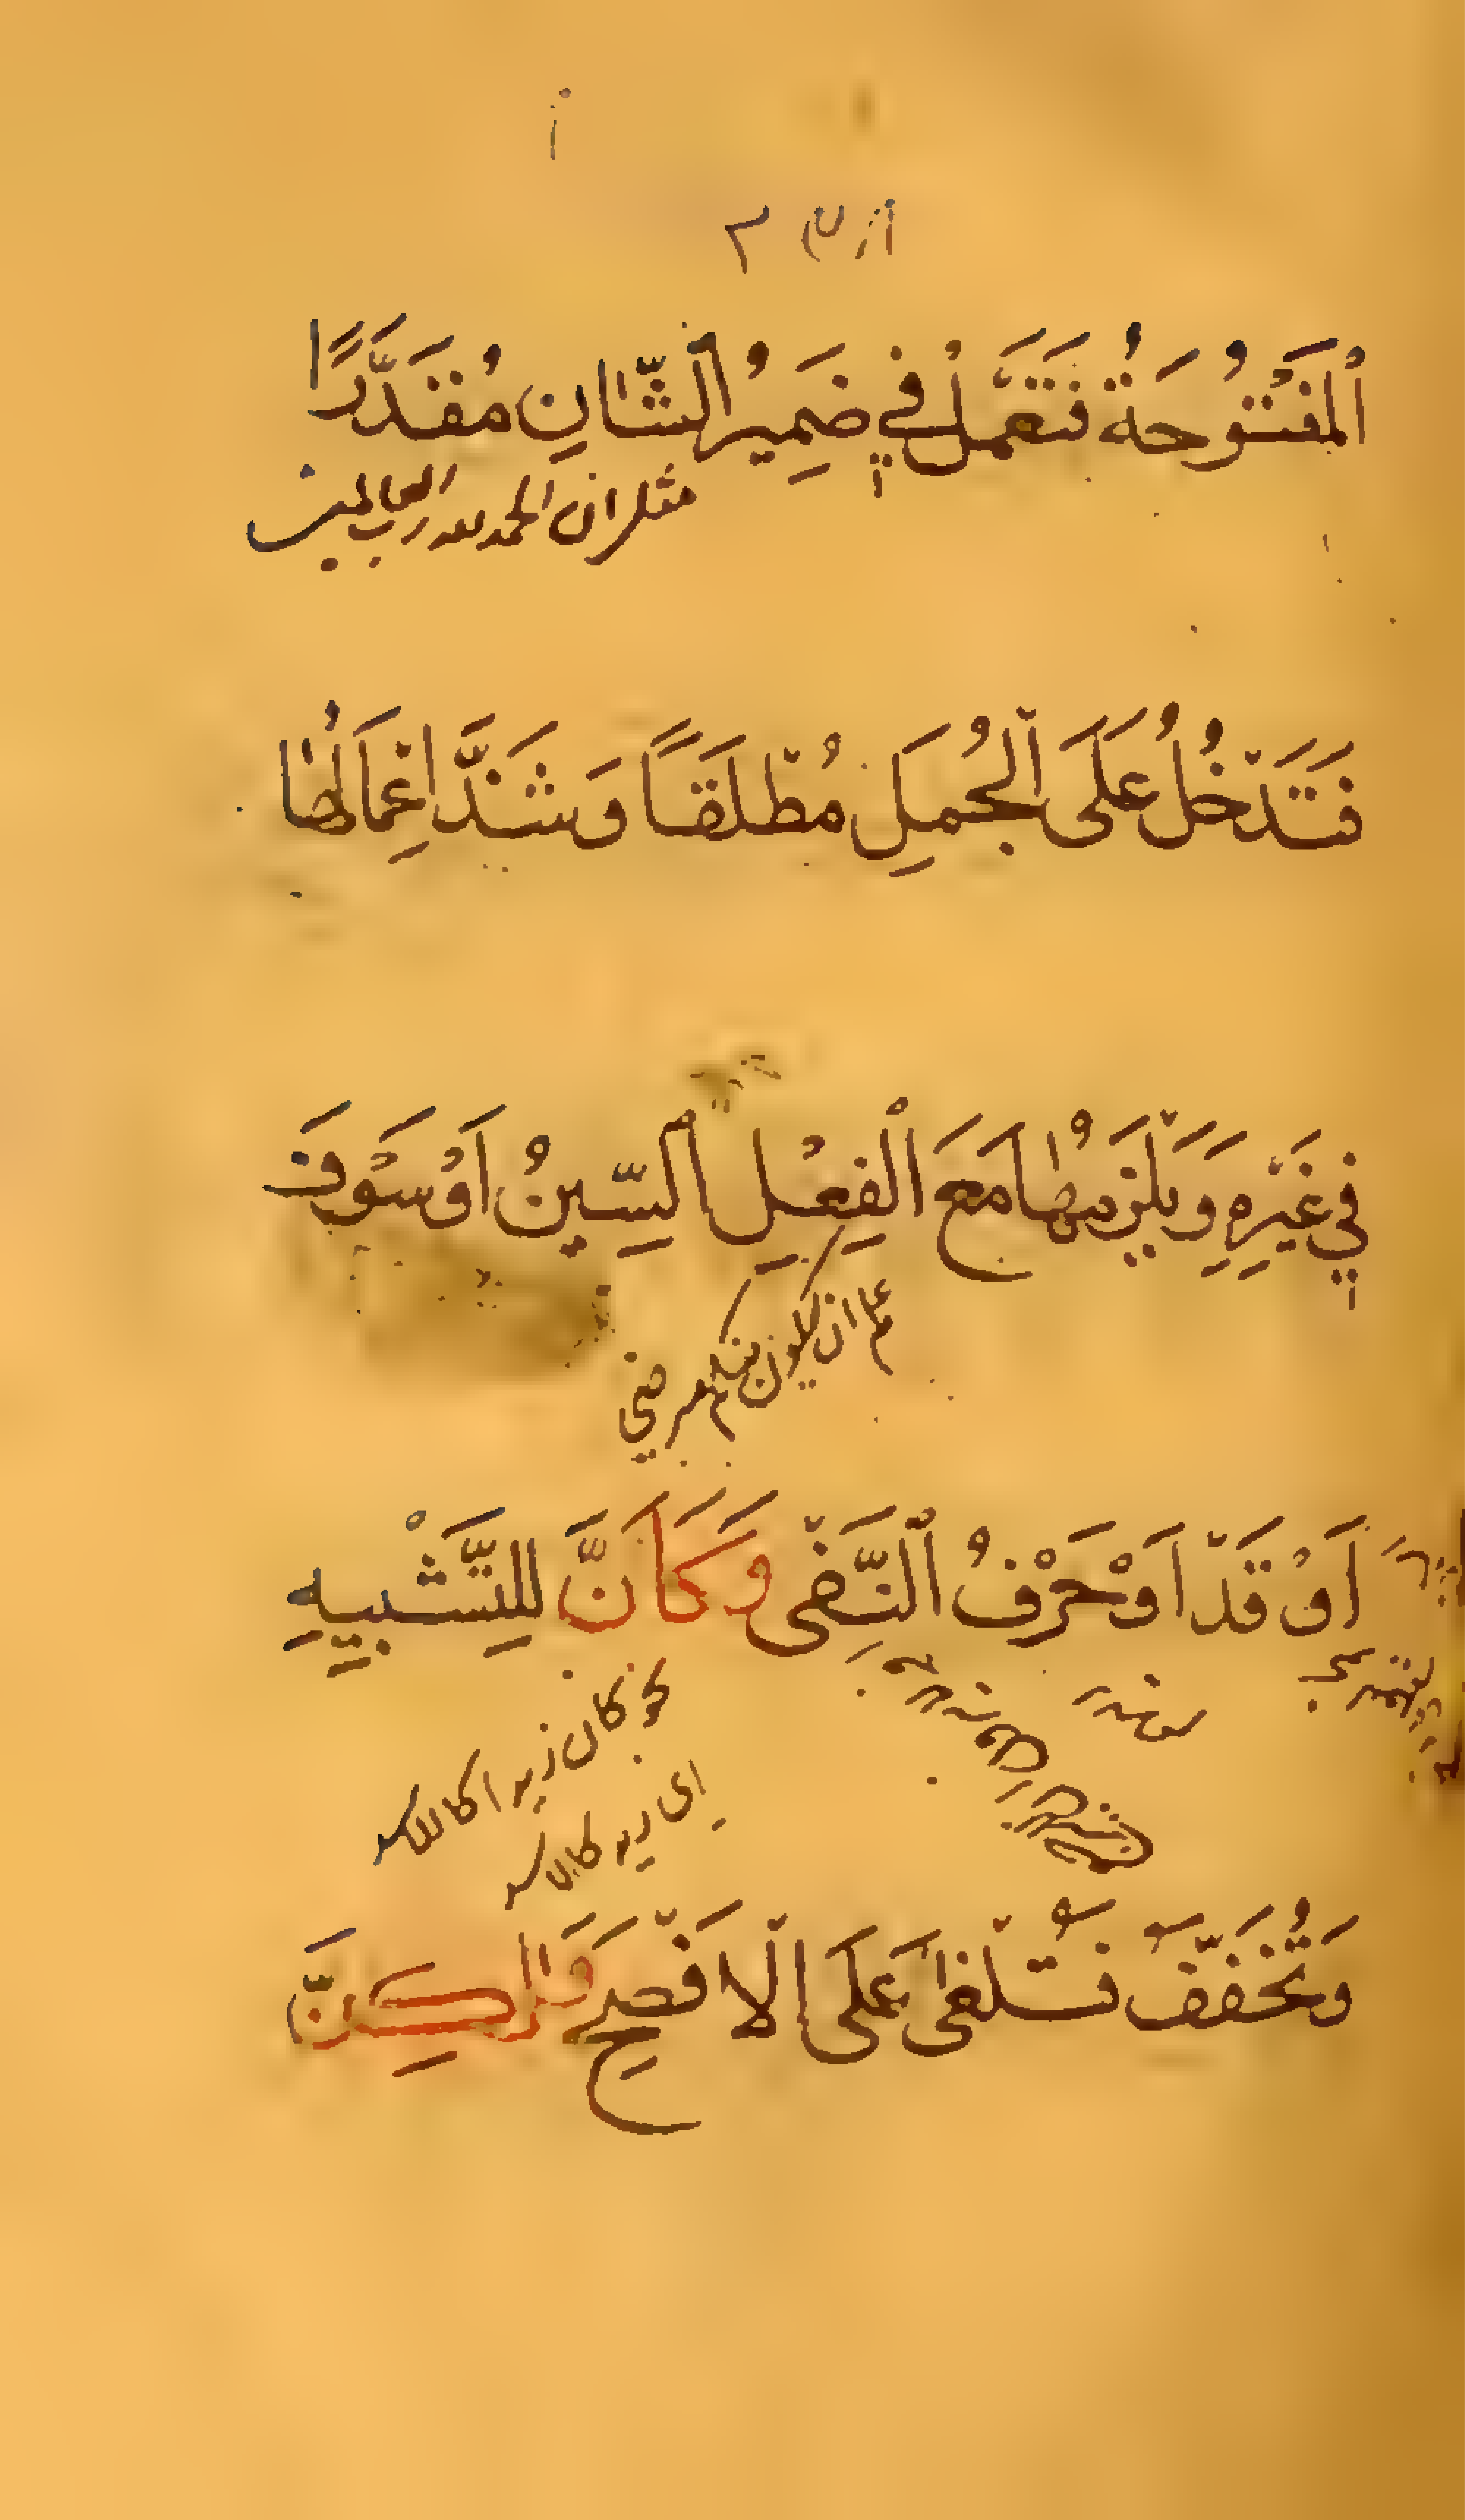 اَلْمَفْتُوحَةُ فَتَعْمَلُ فِي ضَمِيرِ الشَّانِ مُقَدَّرًا
مثل ان الحمد لله رب العالمين
فَتَدْخُلُ عَلَى الْجُمَلِ مُطْلَقًا وَشَذَّ اِعْمَالُهَا
فِي غَيْرِهِ وَيَلْزَمُهَا مَعَ الْفِعْلِ السِّينُ اَوْ سَوْفَ
علم ان سيكون منكم مرضى
اَوْ قَدْ اَوْ حَرْفُ النَّفْىِ وَكَاَنَّ لِلتَّشْبِيهِ
نحو كان زيدا كالاسد
اى زيد كالاسد
وَتُخَفَّفُ فَتُلْغٰى عَلَى الْاَفْصَحِ وَلٰكِنَّ